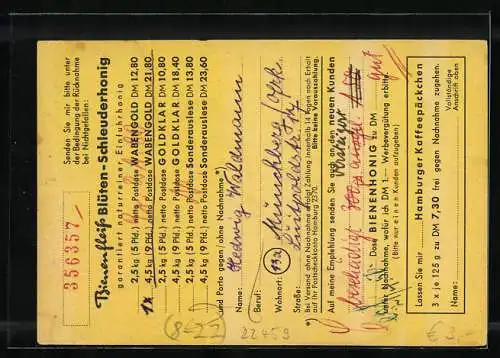 356357
Senden Sie mir bitte unter
der Bedingung der Rücknahme
bei Nichtgefallen:
Bienenfleiß Blüten-Schleuderhonig
garantiert naturreine Einfuhrhonig
2,5 kg (5 Pfd.) netto Postdose WABENGOLD DM 12,80
1x 4,5 kg (9 Pfd.) netto Postdose WABENGOLD DM 21,80
2,5 kg (5 Pfd.) netto Postdose GOLDKLAR DM 10,80
4,5 kg (9 Pfd.) netto Postdose GOLDKLAR DM 18,40
2,5 kg (5 Pfd.) netto Postdose Sonderauslese DM 13,80
4,5 kg (9 Pfd.) netto Postdose Sonderauslese DM 23,60
und Porto gegen / ohne Nachnahme*)
Name: Hedwig Waldmann
Beruf:
Wohnort: 13a Münchberg / Ofr.
Straße: Luitpoldstr.
*) Bei Versand ohne Nachnahme erfolgt Zahlung innerhalb 14 Tagen nach Erhalt
auf Ihr Postscheckkonto Hamburg 2370. Bitte keine Vorauszahlung.
Auf meine Empfehlung senden Sie auch an den neuen Kunden
Dose BIENENHONIG zu DM
unter Nachnahme, wofür ich DM 1,— Werbevergütung erbitte.
(Bitte nur einen Kunden aufgeben)
Lassen Sie mir Hamburger Kaffeepäckchen
3 x je 125 g zu DM 7,30 frei gegen Nachnahme zugehen.
Name:
Vollständige
Anschrift oben
22459
€ 3,-